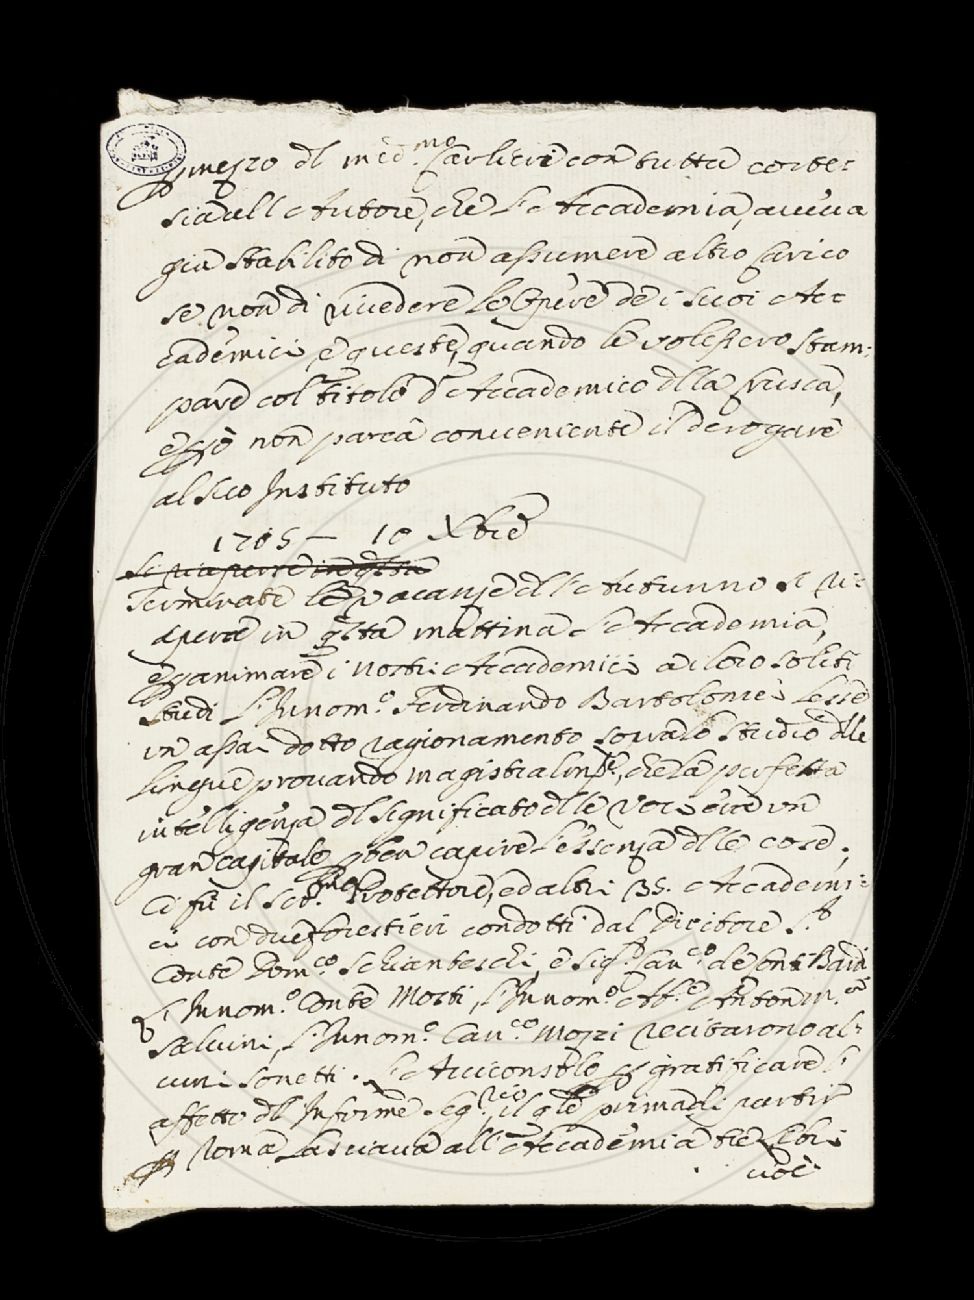 p mezzo dl med.mo Carlieri con tutta corte=
sia all'Autore, che l'Accademia, aveva
già stabilito di non assumere altro carico
se non di rivedere le Opere de i suoi Ac=
cademici e queste, quando le volessero stam=
pare col titolo d'Accademico dlla Crusca,
e pciò non parea conveniente il derogare
al suo Instituto
1705 – 10 Xbre
Si riaperse in qsta
Terminate le vacanze dll'Autunno si ri=
aperse in qsta mattina l'Accademia,
e p animare i nostri Accademici a i loro soliti
studi l'Innom.o Ferdinando Bartolomei lesse
un assai dotto ragionamento sovra lo studio dlle
lingue provando magistralm.te, che la perfetta
intelligenza dl significato dlle voci era un
gran capitale p ben capire l'essenza dlle cose.
Ci fù il Ser.mo Protettore, ed altri 35. Accademi=
ci con due forestieri condotti dal Dicitore S.r
Conte Dom.co Schianteschi, e Sig.r Can.co de Conti Bardi
L'Innom.o Conte Mozzi, l'Innom.o Ab.e Anton M.a
Salvini, l'Innom.o Can.co Mozzi recitarono al=
cuni sonetti. L'Arciconsolo p gratificare l'
affetto dl Informe Seg.rio, il qle prima di partir
p Roma lasciava all'Accademia tre libri
voi